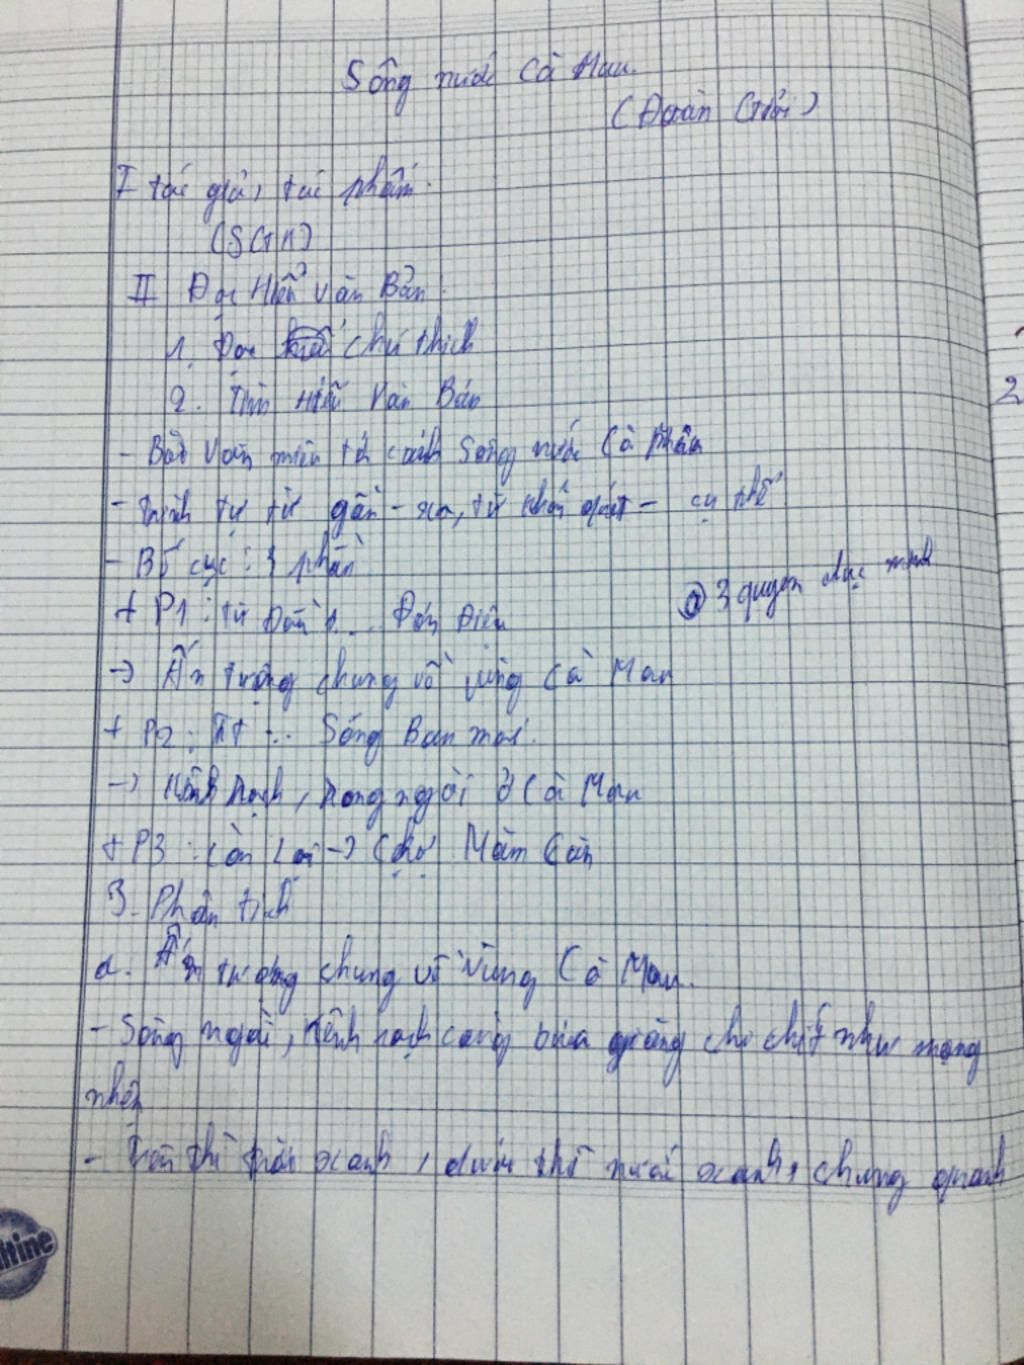 Sông nước Cà Mau.
(Đoàn Giỏi)
I tác giả, tác phẩm.
(SGK)
II Đọc Hiểu Văn Bản.
1. Đọc chú thích
2. Tìm Hiểu Văn Bản
2
- Bài Văn miêu tả cảnh Sông nước Cà Mau
- trình tự từ gần - xa, từ khái quát - cụ thể.
- Bố cục: 3 phần
3 quyển
+ P1: từ Đầu ... Đơn Điệu
-> Ấn tượng chung về vùng Cà Mau
+ P2: TT ... Sóng Ban mai.
-> Kênh rạch, sông ngòi ở Cà Mau
+ P3: Còn Lại -> Chợ Năm Căn
3. Phân tích
a. Ấn tượng chung về Vùng Cà Mau.
- Sông ngòi, kênh rạch càng bủa giăng chi chít như mạng
nhện
- Trên thì trời xanh, dưới thì nước xanh, chung quanh
ltine